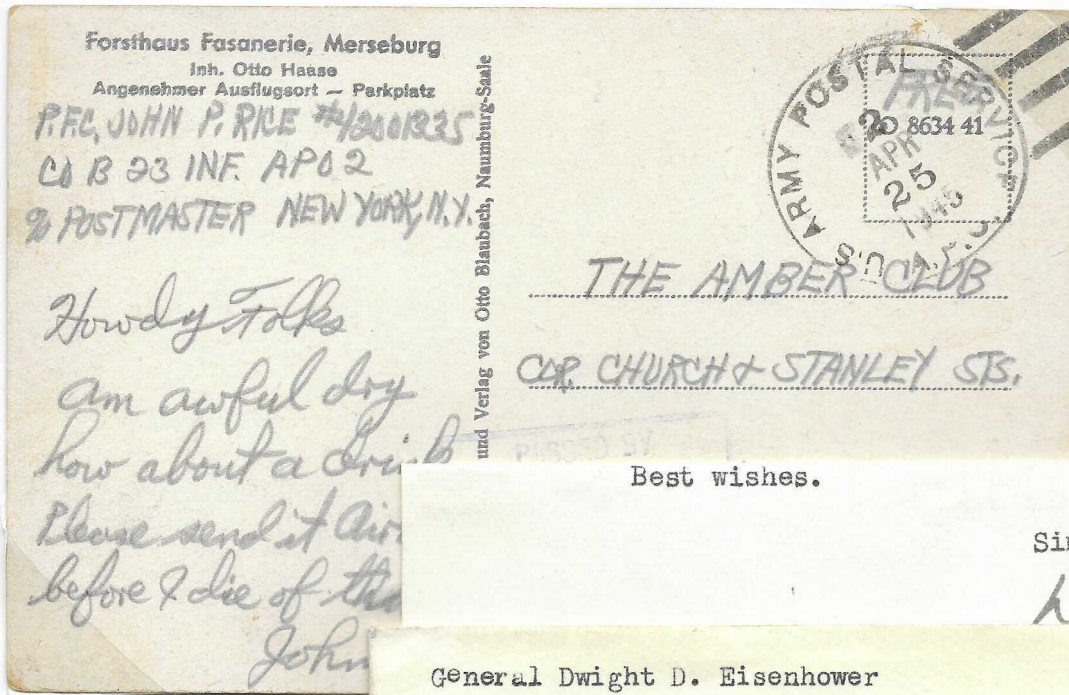 Forsthaus Fasanerie, Merseburg
Inh. Otto Haase
Angenehmer Ausflugsort — Parkplatz
P.F.C. JOHN P. RICE #12001335
CO B 23 INF. APO 2
% POSTMASTER NEW YORK, N.Y.
Howdy Folks
am awful dry
how about a drink
Please send it
before I die of
John
und Verlag von Otto Blaubach, Naumburg-Saale
U.S. ARMY POSTAL SERVICE
A.P.O.
2
APR
25
1945
FREE
8634 41
THE AMBER CLUB
COR. CHURCH & STANLEY STS.
PASSED BY
Best wishes.
General Dwight D. Eisenhower